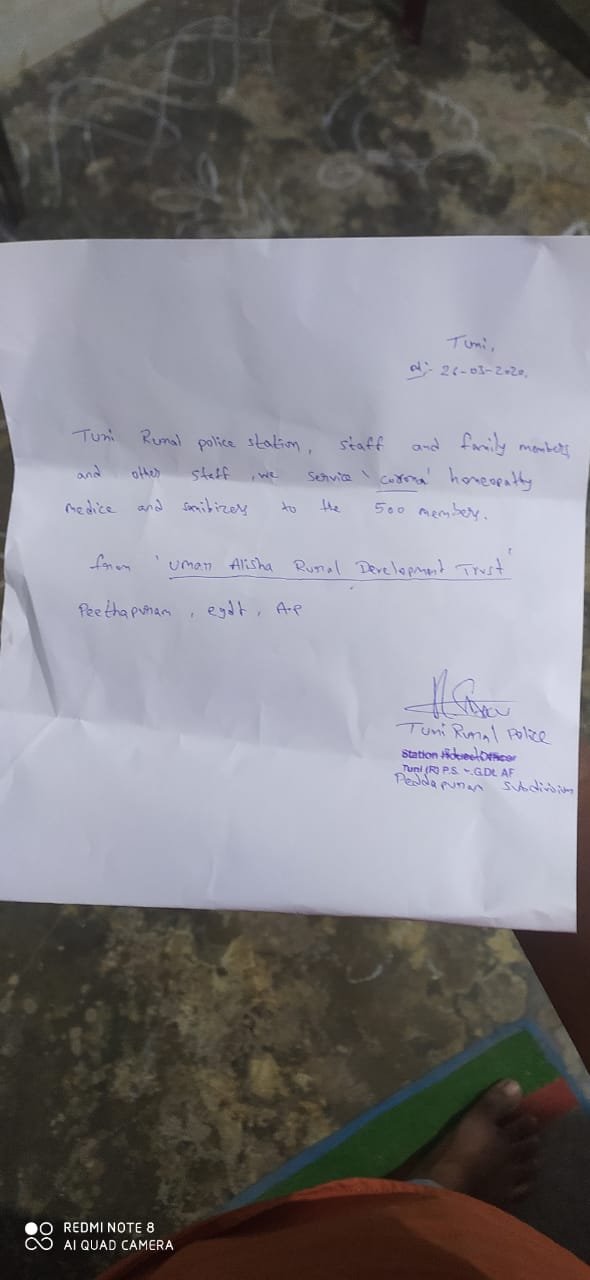 Tuni,
dt:- 26-03-2020.
Tuni Rural police station, staff and family members
and other staff, we service 'corona' homeopathy
medice and sanitizers to the 500 members.
from 'Umar Alisha Rural Development Trust'
Peethapuram, egdt, A.P
Tuni Rural Police
Station Officer
Tuni (R) P.S. G.Dt. AF
Peddapuram Subdivision
REDMI NOTE 8
AI QUAD CAMERA